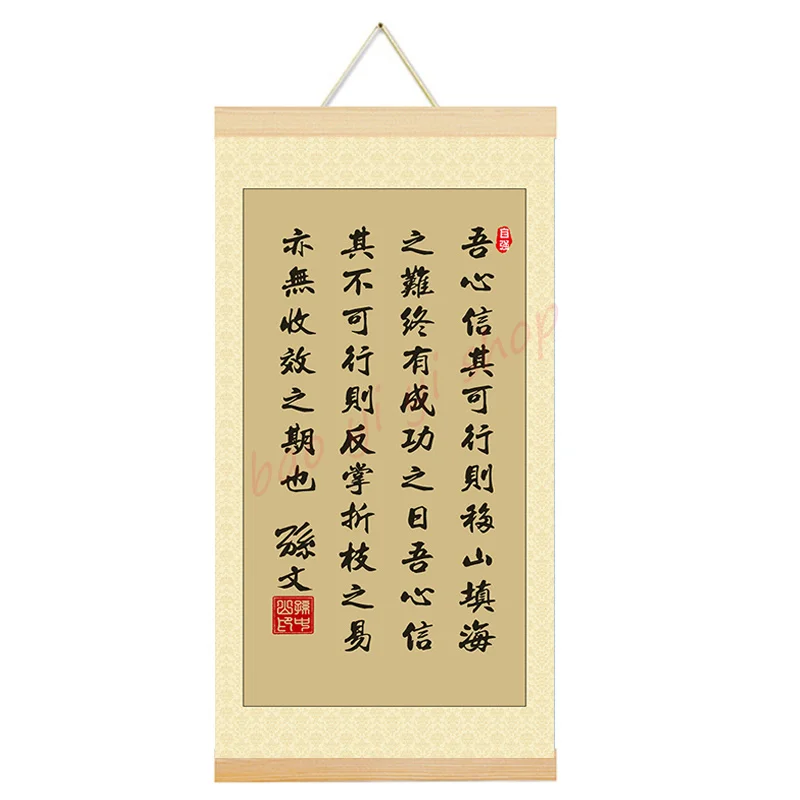 自強
吾心信其可行則移山填海
之難終有成功之日吾心信
其不可行則反掌折枝之易
亦無收效之期也
孫文
孫中山印
bao yi yi shop